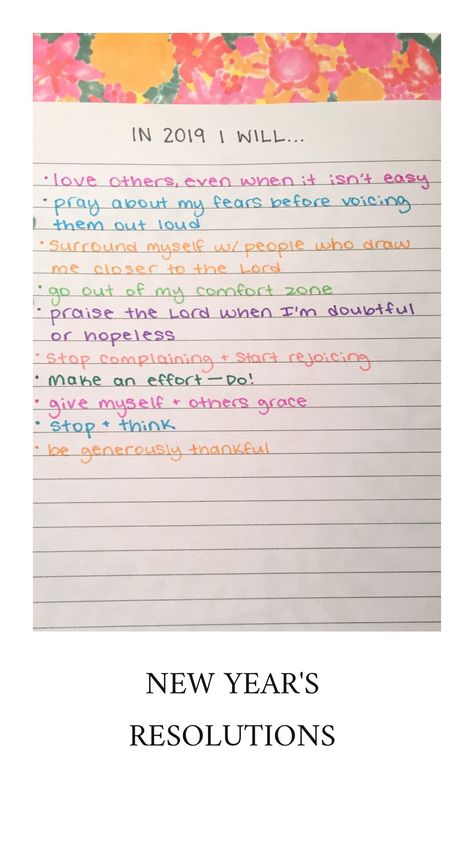 IN 2019 I WILL...
• love others, even when it isn't easy
• pray about my fears before voicing
them out loud
• surround myself w/ people who draw
me closer to the Lord
• go out of my comfort zone
• praise the Lord when I'm doubtful
or hopeless
• stop complaining + start rejoicing
• make an effort — DO!
• give myself + others grace
• stop + think
• be generously thankful
NEW YEAR'S
RESOLUTIONS